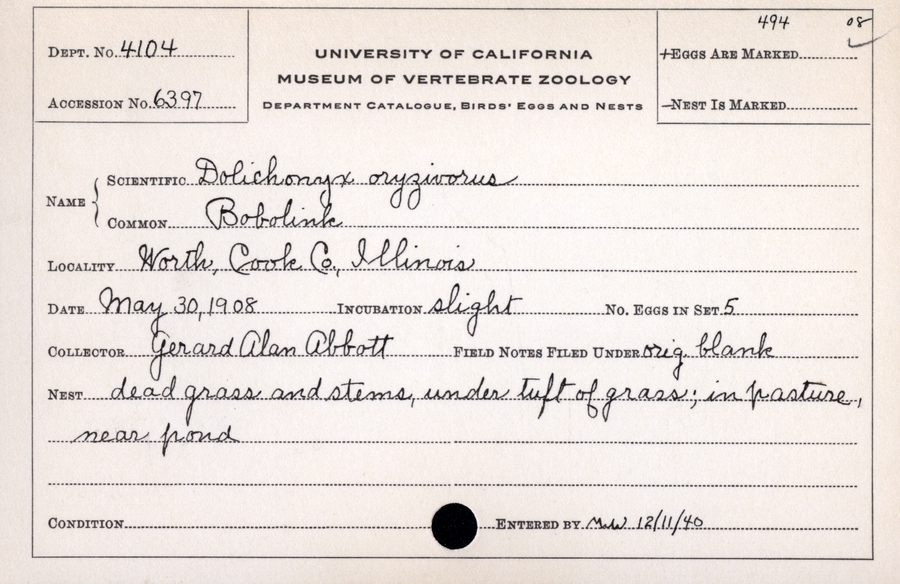 494 08
Dept. No. 4104
+Eggs Are Marked
University of California
Museum of Vertebrate Zoology
Department Catalogue, Birds' Eggs and Nests
Accession No. 6397
—Nest Is Marked
Name { Scientific Dolichonyx oryzivorus
Common Bobolink
Locality Worth, Cook Co., Illinois
Date May 30, 1908 Incubation slight No. Eggs in Set 5
Collector Gerard Alan Abbott Field Notes Filed Under orig. blank
Nest dead grass and stems, under tuft of grass; in pasture,
near pond
Condition Entered by 12/11/40